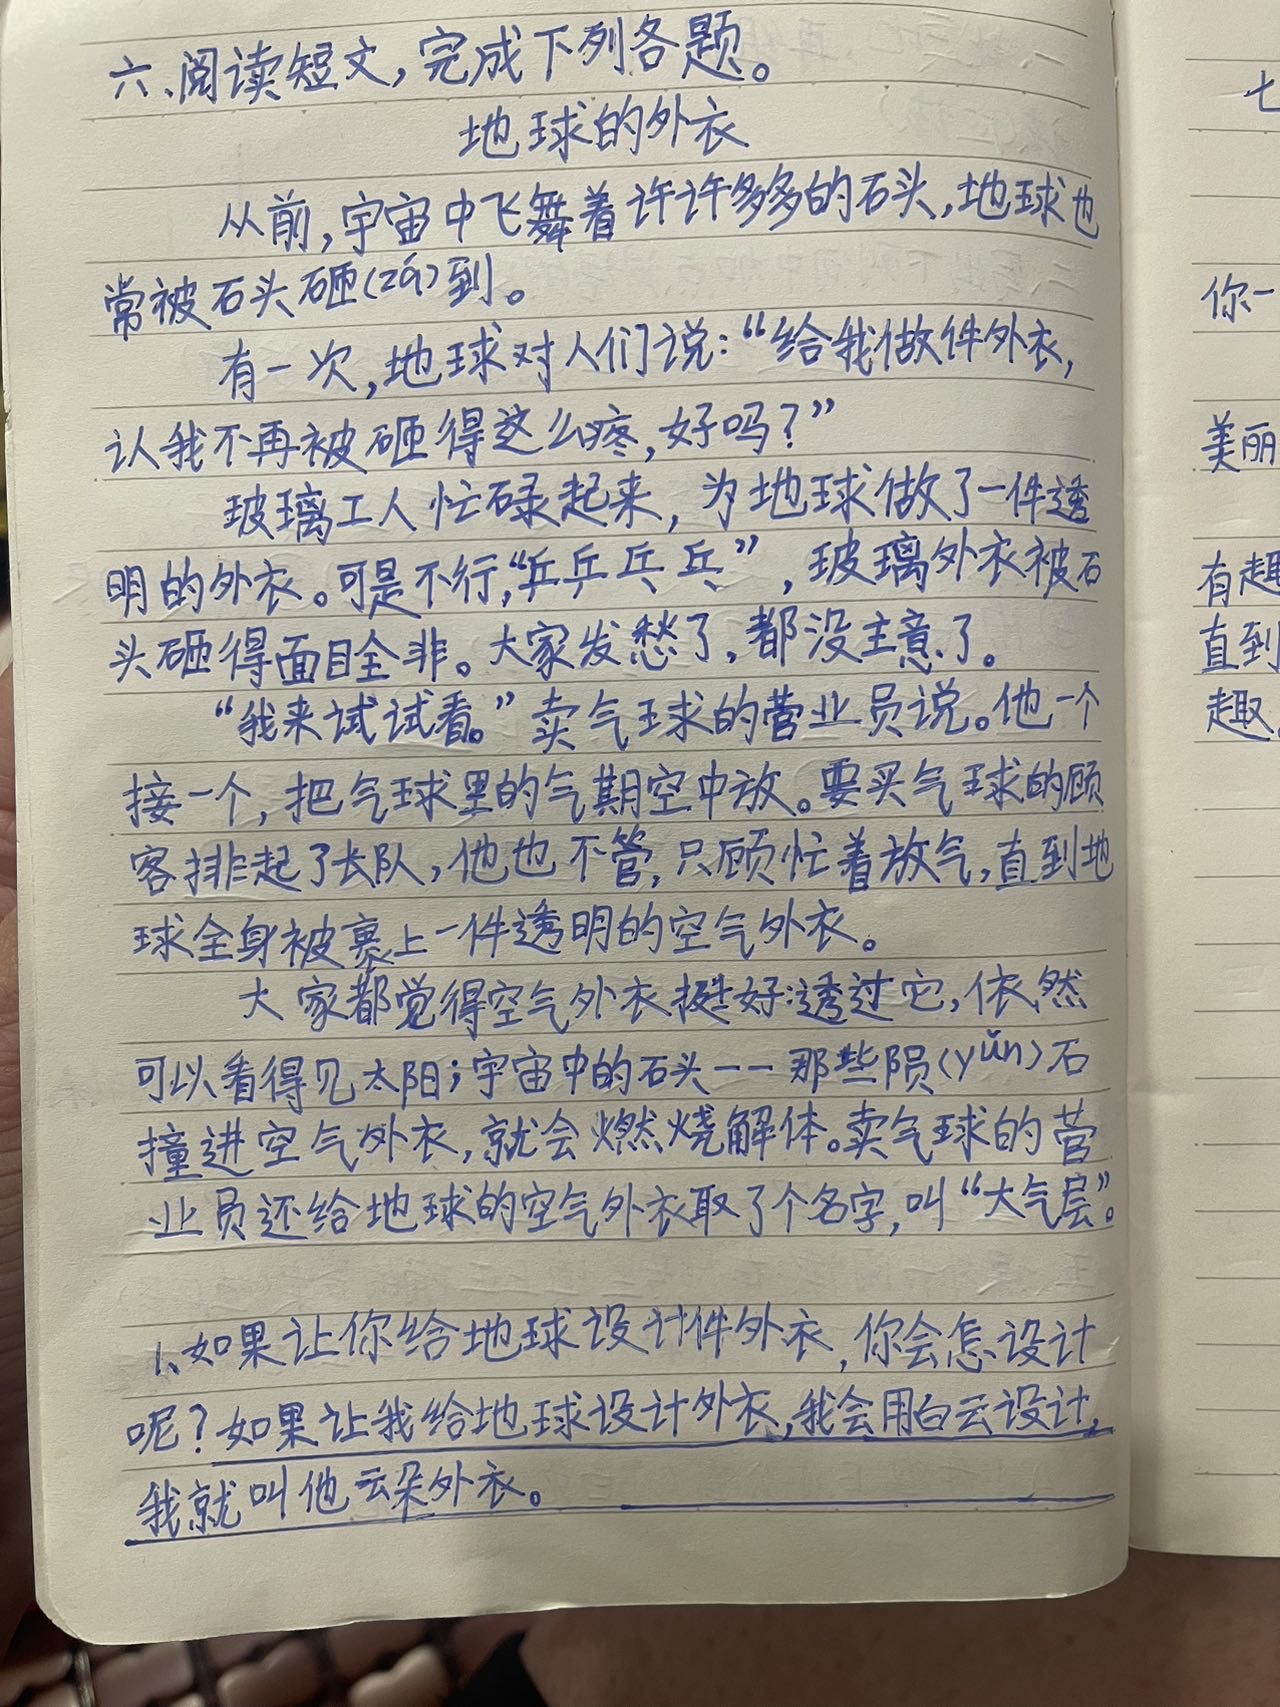 六、阅读短文，完成下列各题。
地球的外衣
从前，宇宙中飞舞着许许多多的石头，地球也
常被石头砸(zá)到。
有一次，地球对人们说：“给我做件外衣，
认我不再被砸得这么疼，好吗？”
玻璃工人忙碌起来，为地球做了一件透
明的外衣。可是不行，“乒乒乓乓”，玻璃外衣被石
头砸得面目全非。大家发愁了，都没主意了。
“我来试试看。”卖气球的营业员说。他一个
接一个，把气球里的气期空中放。要买气球的顾
客排起了长队，他也不管，只顾忙着放气，直到地
球全身被裹上一件透明的空气外衣。
大家都觉得空气外衣挺好：透过它，依然
可以看得见太阳；宇宙中的石头——那些陨(yǔn)石
撞进空气外衣，就会燃烧解体。卖气球的营
业员还给地球的空气外衣取了个名字，叫“大气层”。
1、如果让你给地球设计件外衣，你会怎设计
呢？如果让我给地球设计外衣，我会用白云设计，
我就叫他云朵外衣。
七
你一
美丽
有趣
直到
趣